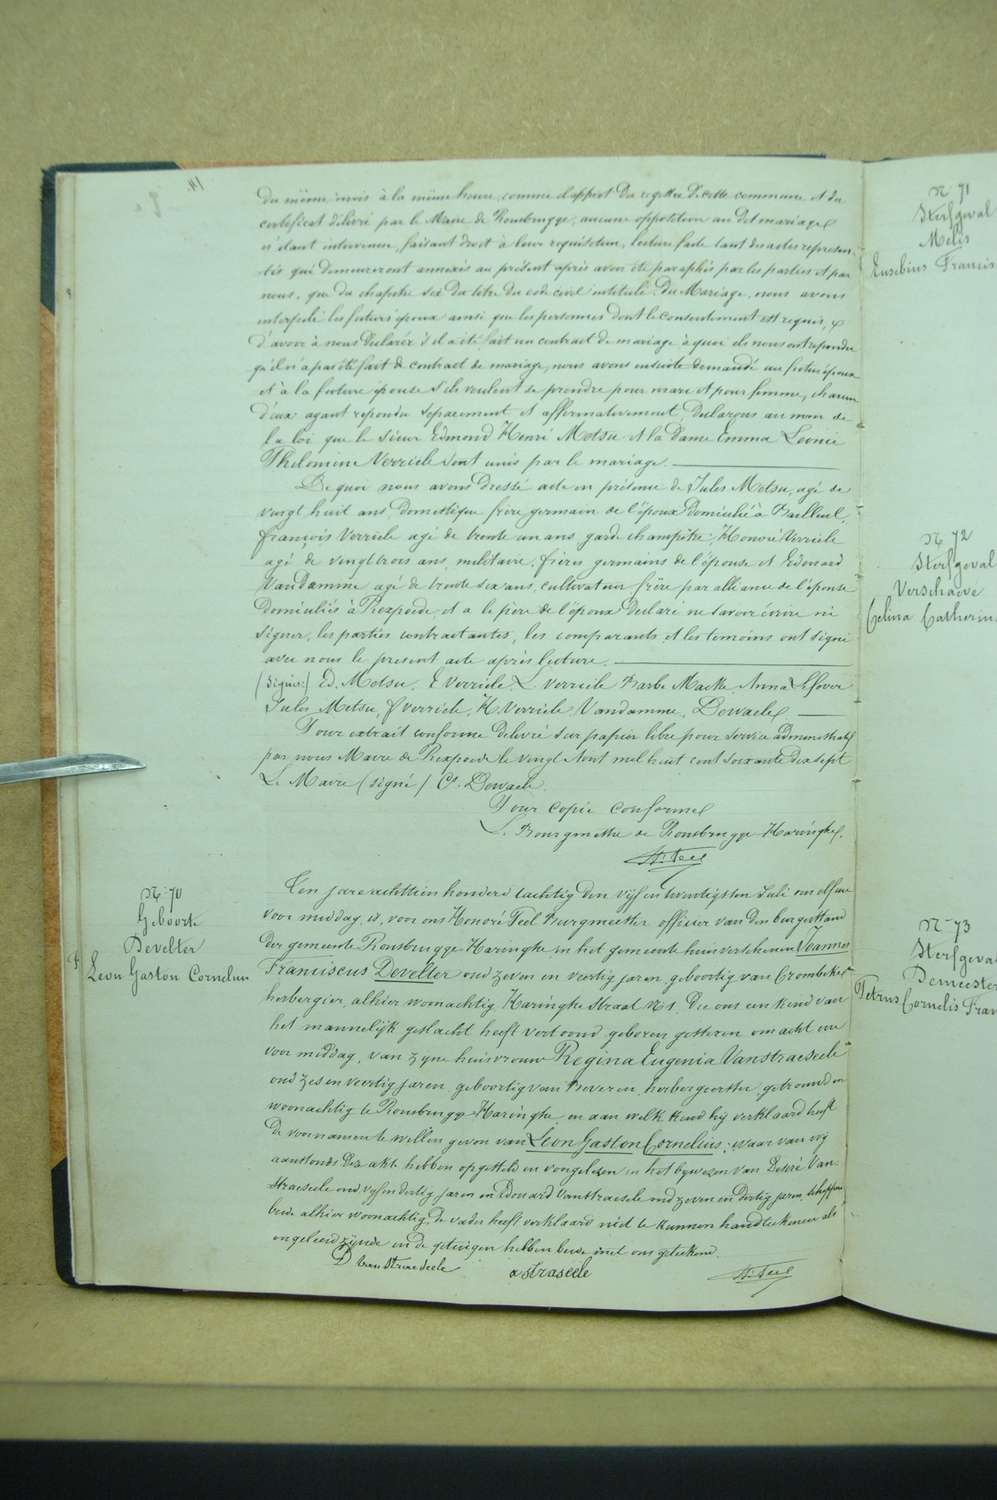 14
du même mois à la même heure, comme il appert du registre de cette commune et du
certificat délivré par le Maire de Rousbrugge, aucune opposition au dit mariage
n'étant intervenue, faisant droit à leur réquisition, lecture faite tant des actes représen-
tés qui demeureront annexés au présent après avoir été paraphés par les parties et par
nous, que du chapitre six du titre du code civil intitulé du Mariage, nous avons
interpellé les futurs époux ainsi que les personnes dont le consentement est requis,
d'avoir à nous déclarer s'il a été fait un contract de mariage à quoi ils nous ont repondu
qu'il n'a pas été fait de contract de mariage, nous avons ensuite demandé au futur époux
et à la future épouse s'ils veulent se prendre pour mari et pour femme, chacun
d'eux ayant repondu séparement et affirmativement, déclarons au nom de
la loi que le sieur Edmond Henri Metsu et la Dame Emma Leonie
Philomine Verriele sont unis par le mariage.
De quoi nous avons dressé acte en présence de Jules Metsu, agé de
vingt huit ans, domestique frère germain de l'époux domicilié à Bailleul,
François Verriele agé de trente un ans garde champêtre, Honoré Verriele
agé de vingt trois ans, militaire, frères germains de l'épouse et Edouard
Vandamme agé de trente six ans, cultivateur frère par alliance de l'épouse
domiciliés à Rexpoede, et a le père de l'époux declaré ne savoir écrire ni
signer, les parties contractantes, les comparants et les temoins ont signé
avec nous le present acte après lecture.
(Signé:) Ed. Metsu. E Verriele. L. Verriele Barbe Macke Anna Lefever
Jules Metsu, F Verriele, H Verriele, Vandamme, Dewaele
Pour extrait conforme délivré sur papier libre pour service administratif
par nous Maire de Rexpoede le vingt Aout mil huit cent soixante dix sept
Le Maire (signé) Dewaele.
Pour copie conforme
Le Bourgmestre de Rousbrugge-Haringhe.
H. Feel
N° 70
Geboorte
Develter
Leon Gaston Cornelius
Ten jare achttien honderd tachtig den vijf en twintigsten Juli om elf ure
voor middag is voor ons Honoré Feel Burgmeester officier van den burgerstand
der gemeente Rousbrugge-Haringhe in het gemeente huis verschenen Joannes
Franciscus Develter oud zeven en veertig jaren, geboortig van Crombeke
herbergier, alhier woonachtig Haringhe straat N° 1. Die ons een kind van
het mannelijk geslacht heeft vertoond, geboren gisteren om acht ure
voor middag, van zyne huisvrouw Regina Eugenia Vanstraeseele
oud zes en veertig jaren geboortig van Beveren, herbergierster, getrouwd en
woonachtig te Rousbrugge-Haringhe en aan welk kind hij verklaard heeft
de voornamen te willen geven van Leon Gaston Cornelius; waar van wij
aanstonds dez akte hebben opgesteld en voorgelezen in het bywezen van Desiré Van-
straeseele oud vijf en dertig jaren en Edouard Vanstraeseele oud zeven en dertig jaren
beide alhier woonachtig. De vader heeft verklaard niet te kunnen handteekenen als
ongeleerd zijnde en de getuigen hebben beide met ons geteekend.
D Van Straeseele
straseele
H. Feel
N° 71
Sterfgeval
Melis
Eusebius Francis
N° 72
Sterfgeval
Verschaeve
Celina Catherin
N° 73
Sterfgeval
Demeester
Petrus Cornelis Fran